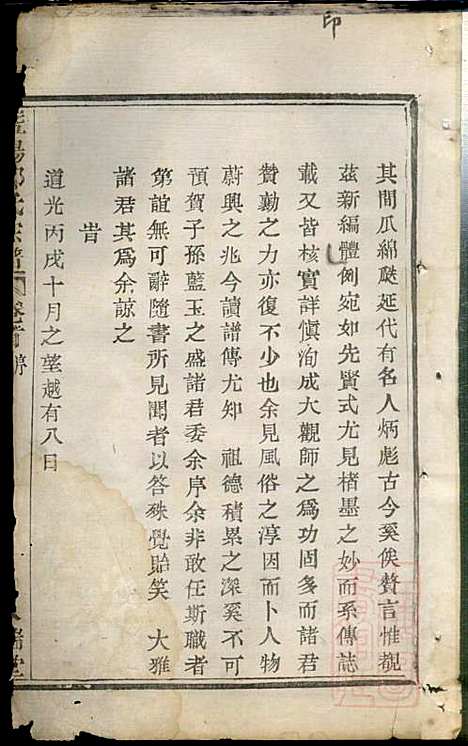 印
其間瓜綿瓞延代有名人炳彪古今奚俟贅言惟覩
茲新編體例宛如先賢式尤見楮墨之妙而系傳誌
載又皆核實詳愼洵成大觀師之爲功固多而諸君
贊勷之力亦復不少也余見風俗之淳因而卜人物
蔚興之兆今讀譜傳尤知 祖德積累之深奚不可
預賀子孫藍玉之盛諸君委余序余非敢任斯職者
第誼無可辭隨書所見聞者以答殊覺貽笑 大雅
諸君其爲余諒之
旹
道光丙戌十月之望越有八日
暨陽 氏宗譜 卷首 序